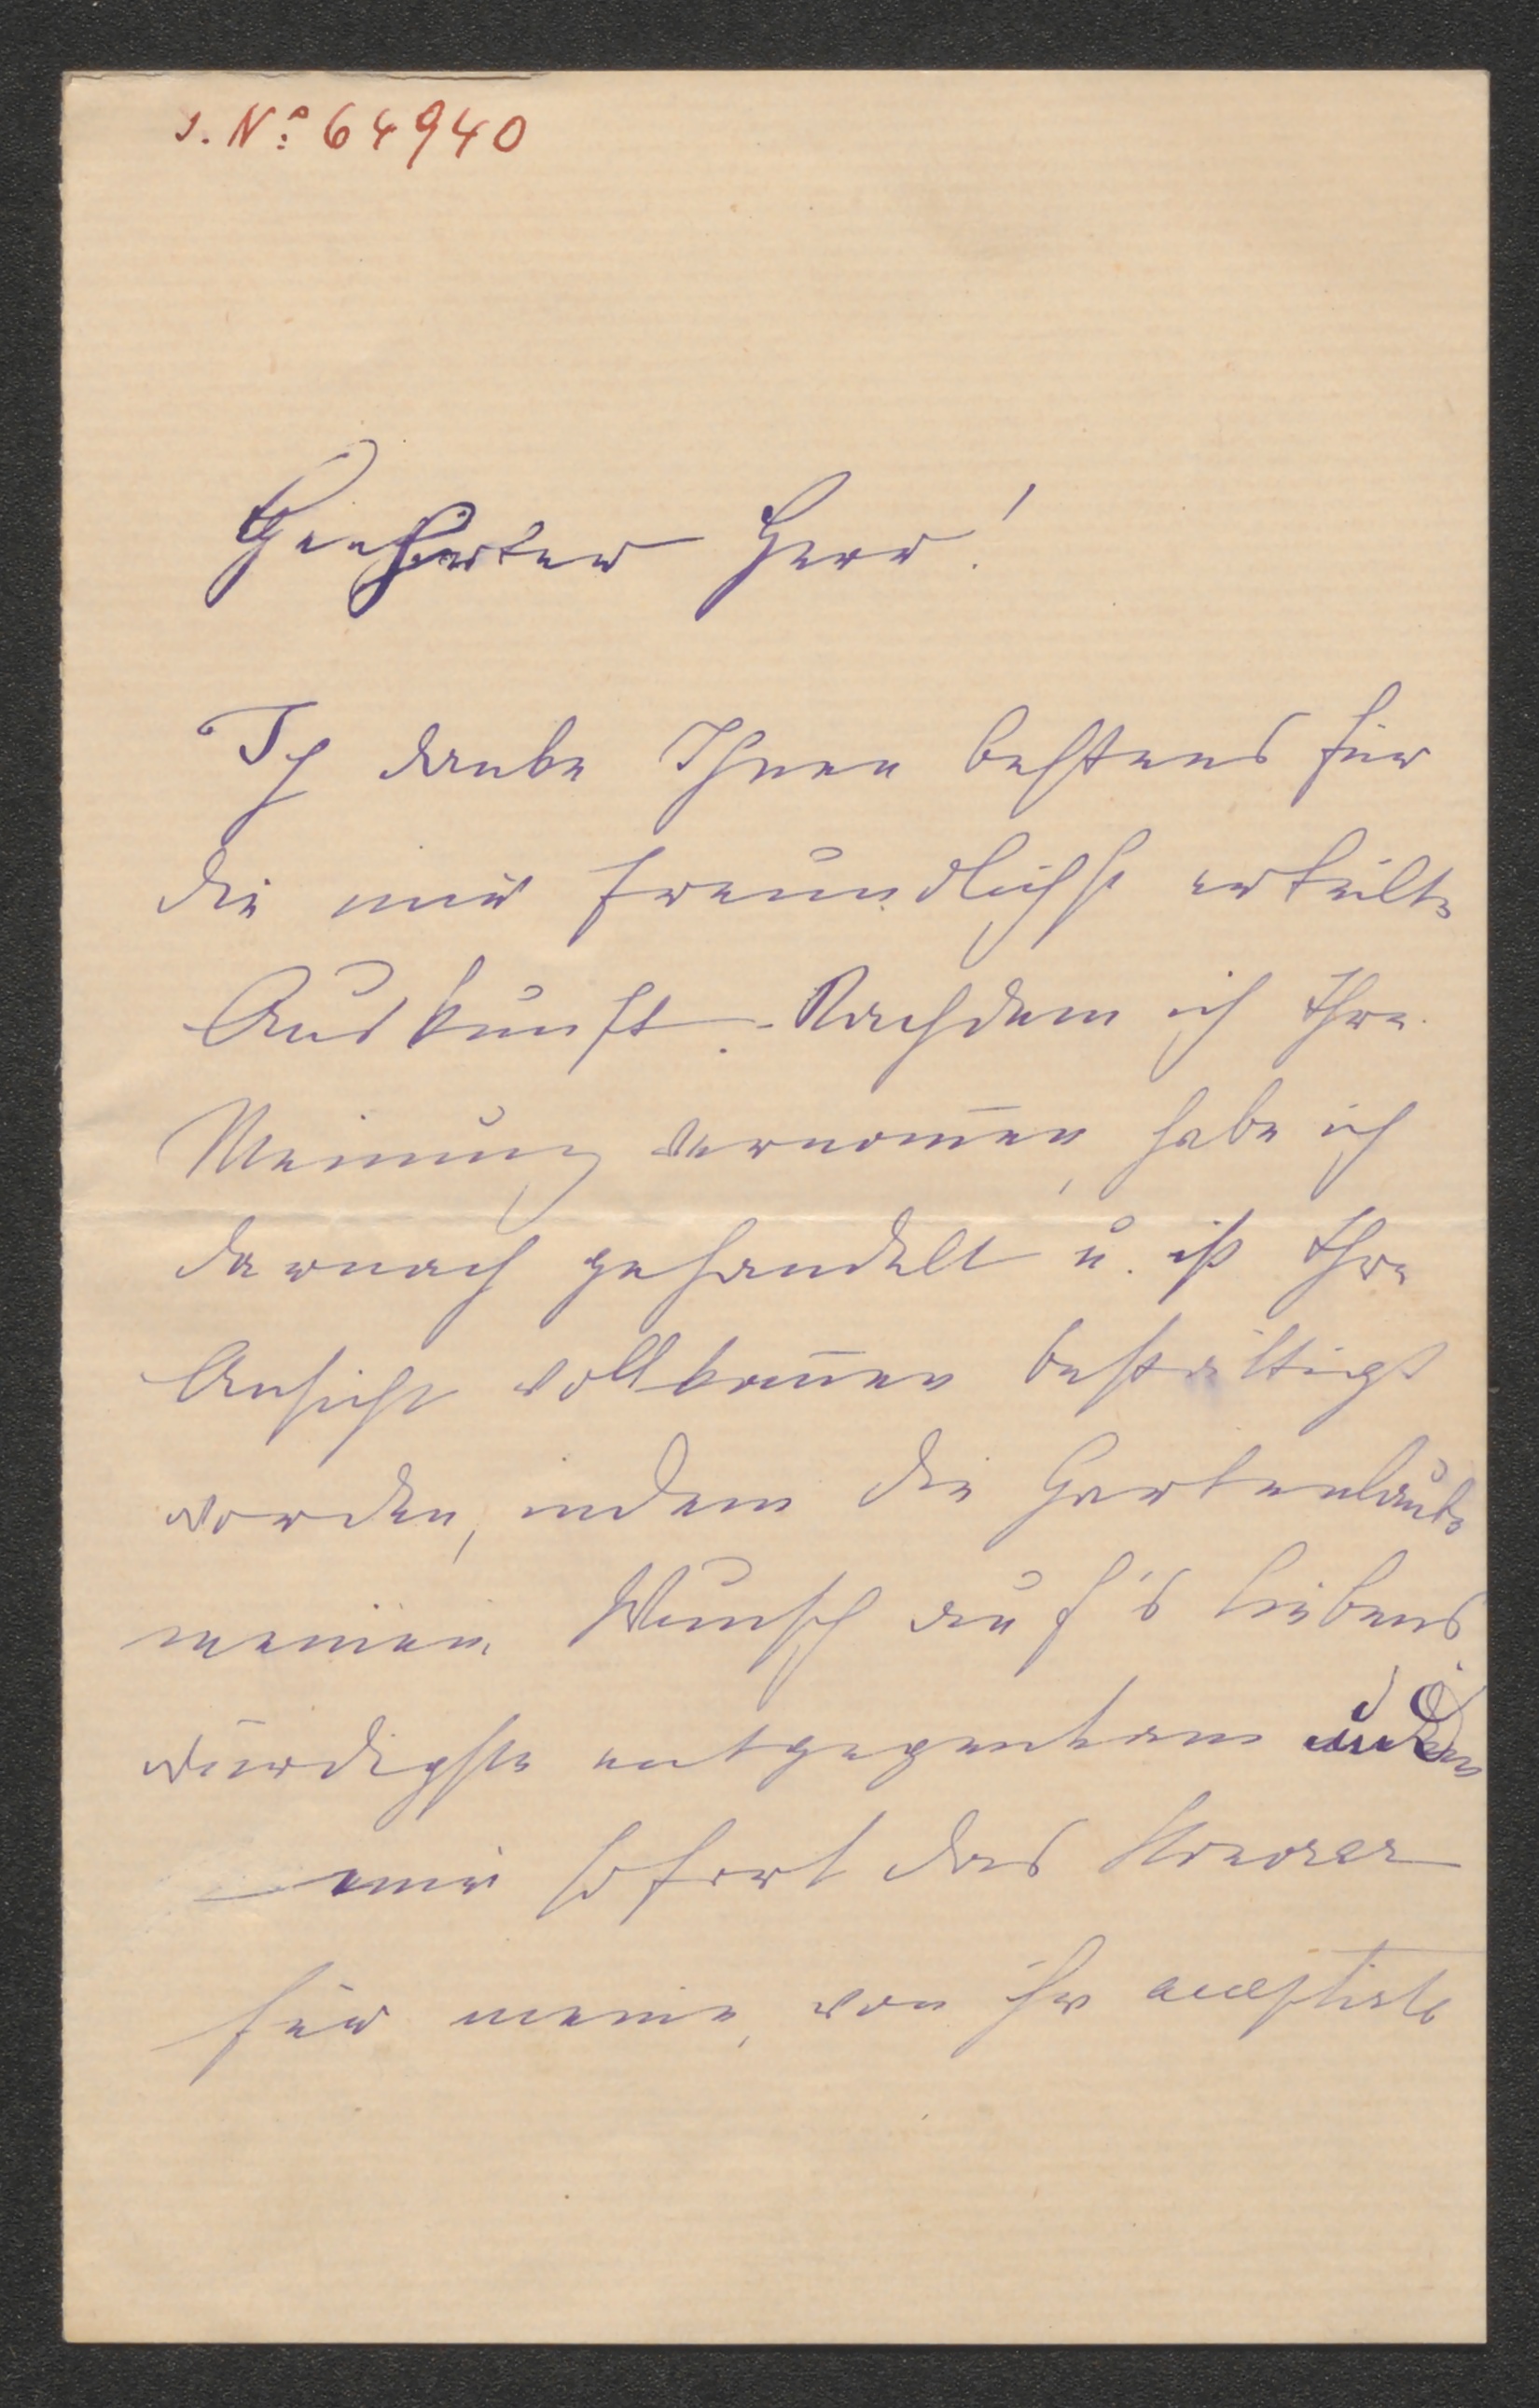 J. Nº 64940
Geehrter Herr!
Ich danke Ihnen bestens für
die mir freundlichst erteilte
Auskunft. Nachdem ich Ihre
Meinung vernom̄en, habe ich
darnach gehandelt u. ist Ihre
Ansicht vollkom̄en bestättigt
worden, indem die Gartenlaube
meinem Wunsch auf's liebens
würdigste entgegenkam
mir sofort das Honorar
für meine, von ihr acceptirte